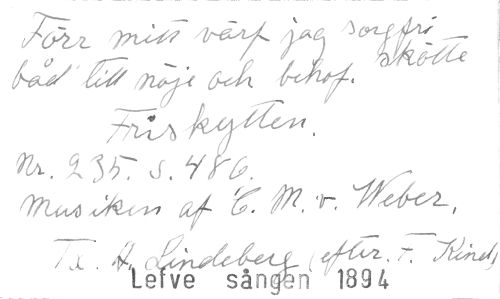 Förr mitt värf jag sorgfri skötte
båd' till nöje och behof.
Friskytten.
Nr. 235. s. 486.
Musiken af C. M. v. Weber.
Tx. A. Lindeberg (efter F. Kind)
Lefve sången 1894